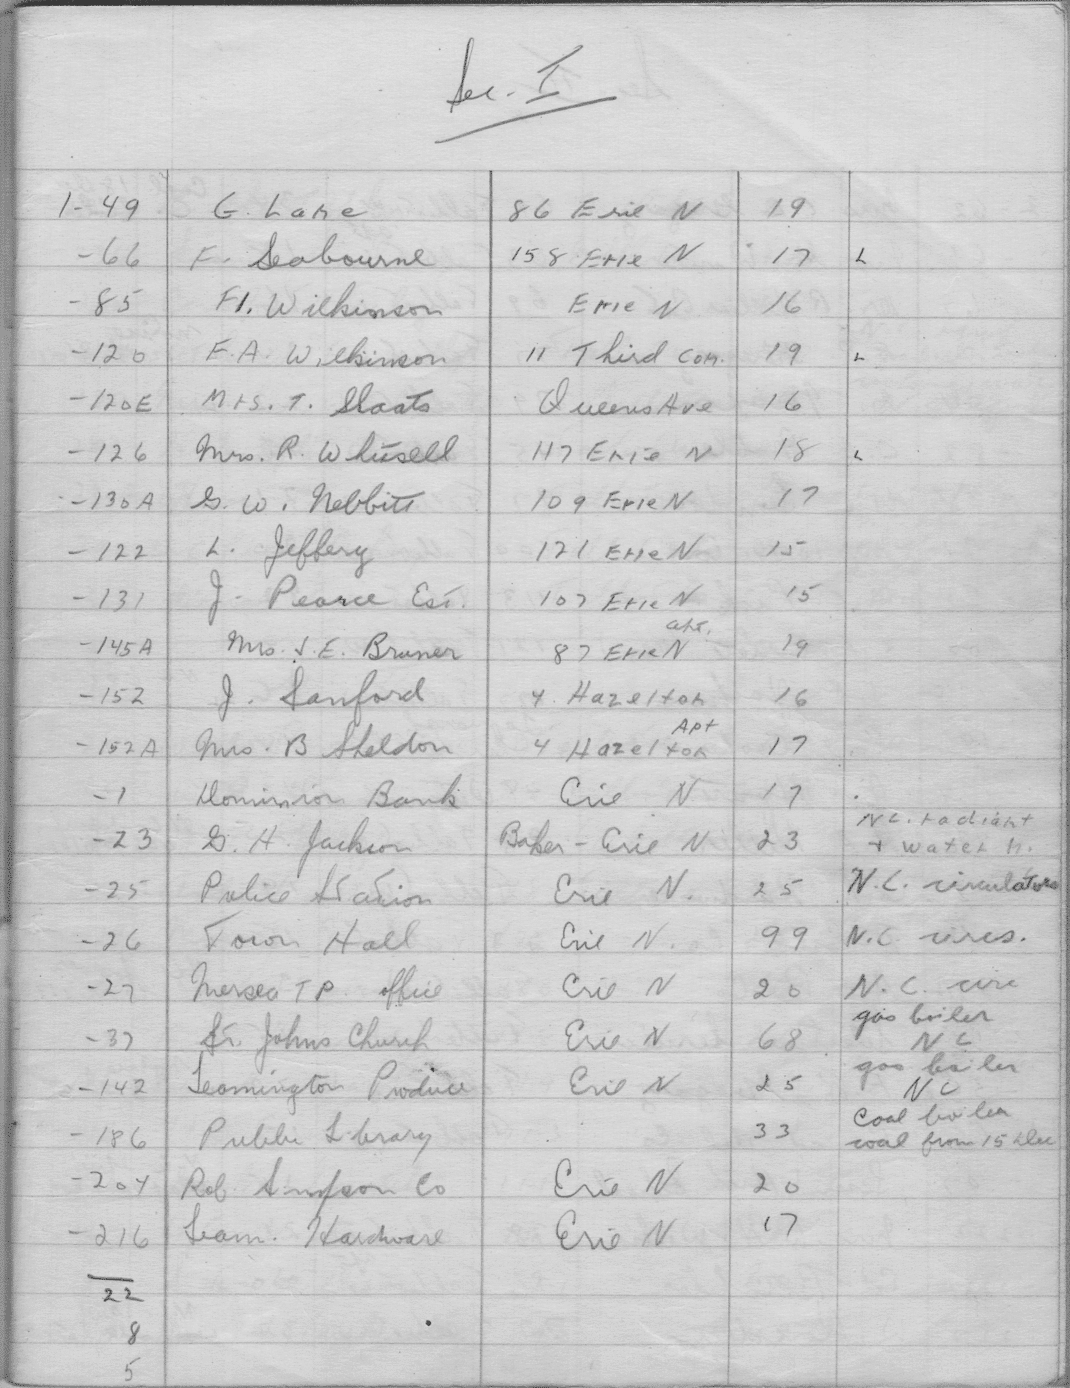 Sec. I
1-49 G. Lane 86 Erie N 19
-66 F. Seabourne 158 Erie N 17 L
-85 H. Wilkinson Erie N 16
-120 F.A. Wilkinson 11 Third Con. 19 L
-120E Mrs. T. Staats Queens Ave 16
-126 Mrs. R. Whitsell 117 Erie N 18 L
-130A G. W. Nebbitt 109 Erie N 17
-122 L. Jeffery 121 Erie N 15
-131 J. Pearce Est. 107 Erie N 15
apt.
-145A Mrs. J. E. Bruner 87 Erie N 19
-152 J. Sanford 4 Hazelton 16
Apt
-152A Mrs. B Sheldon 4 Hazelton 17
-1 Dominion Bank Erie N 17
N.C. radiant
-23 G. H. Jackson Baker - Erie N 23 + water h.
-25 Police Station Erie N. 25 N.C. circulators
-26 Town Hall Erie N. 99 N.C. circs.
-27 Mersea T P. office Erie N 20 N. C. circ
gas boiler
-37 St. Johns Church Erie N 68 N C
gas boiler
-142 Leamington Produce Erie N 25 N C
Coal boiler
-186 Public Library 33 coal from 15 Dec
-204 Rob. Simpson Co Erie N 20
-216 Leam. Hardware Erie N 17
22
8
5